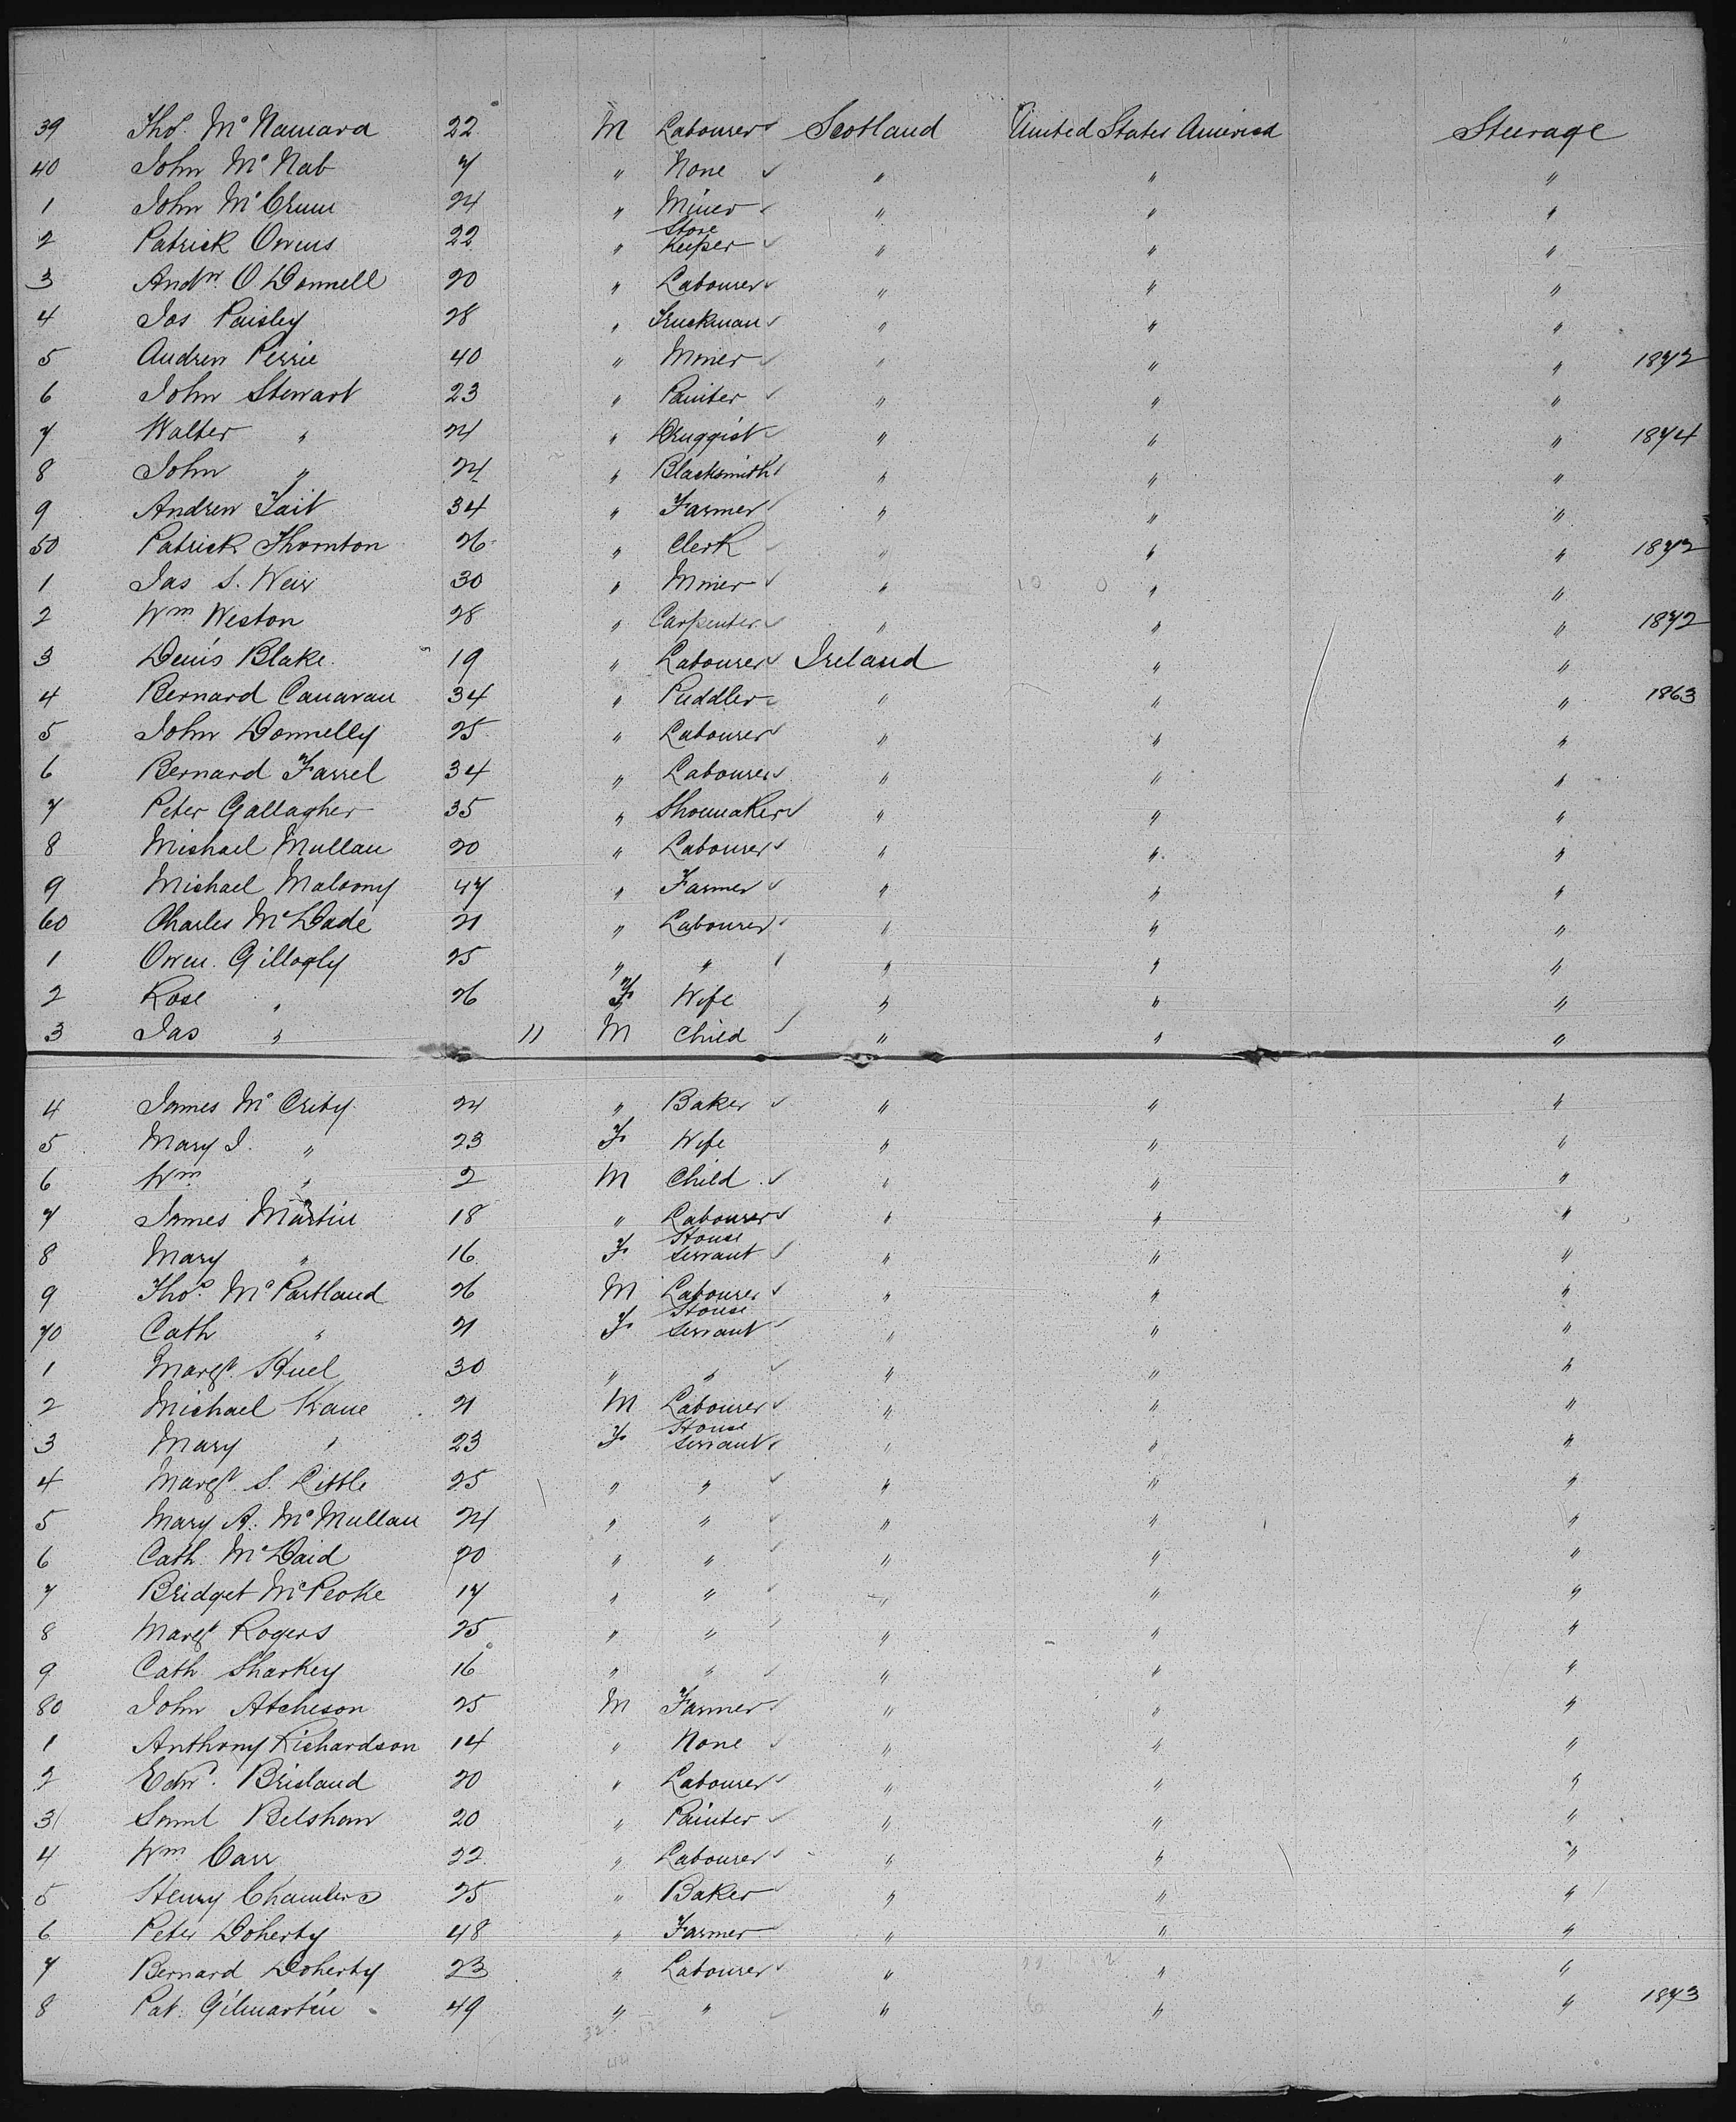 39 Thos. McNamara 22 M Labourer Scotland United States America Steerage
40 John McNab 7 " None " " "
1 John McCrum 24 " Miner " " "
2 Patrick Owens 22 " Store Keeper " " "
3 Andw. O'Donnell 20 " Labourer " " "
4 Jas Paisley 28 " Truckman " " "
5 Andrew Perrie 40 " Miner " " " 1872
6 John Stewart 23 " Painter " " "
7 Walter " 24 " Druggist " " " 1874
8 John " 24 " Blacksmith " " "
9 Andrew Tait 34 " Farmer " " "
50 Patrick Thornton 26 " Clerk " " " 1872
1 Jas S. Weir 30 " Miner " " "
2 Wm Weston 28 " Carpenter " " " 1872
3 Denis Blake 19 " Labourer Ireland " "
4 Bernard Canavan 34 " Puddler " " " 1863
5 John Donnelly 25 " Labourer " " "
6 Bernard Farrel 34 " Labourer " " "
7 Peter Gallagher 35 " Shoemaker " " "
8 Michael Mullan 20 " Labourer " " "
9 Michael Maloony 47 " Farmer " " "
60 Charles McDade 21 " Labourer " " "
1 Owen Gillogly 25 " " " " "
2 Rose " 26 F Wife " " "
3 Jas " 11 M Child " " "
4 James McCrity 24 " Baker " " "
5 Mary J. " 23 F Wife " " "
6 Wm " 2 M Child " " "
7 James Martin 18 " Labourer " " "
8 Mary " 16 F House Servant " " "
9 Thos. McPartland 26 M Labourer " " "
70 Cath " 21 F House Servant " " "
1 Margt. Huel 30 " " " " "
2 Michael Kane 21 M Labourer " " "
3 Mary " 23 F House Servant " " "
4 Margt. S. Little 25 " " " " "
5 Mary A. McMullan 24 " " " " "
6 Cath McDaid 20 " " " " "
7 Bridget McPeoke 17 " " " " "
8 Margt Rogers 25 " " " " "
9 Cath Sharkey 16 " " " " "
80 John Atcheson 25 M Farmer " " "
1 Anthony Richardson 14 " None " " "
2 Edwd. Brisland 20 " Labourer " " "
3 Saml Belshaw 20 " Painter " " "
4 Wm Carr 22 " Labourer " " "
5 Henry Chambers 25 " Baker " " "
6 Peter Doherty 48 " Farmer " " "
7 Bernard Doherty 23 " Labourer " " "
8 Pat. Gilmartin 49 " " " " " 1873